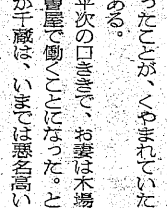 ったことが、くやまれていた
ある。
平次の口ききで、お妻は木場
屋で働くことになった。と
が千蔵は、いまでは悪名高い